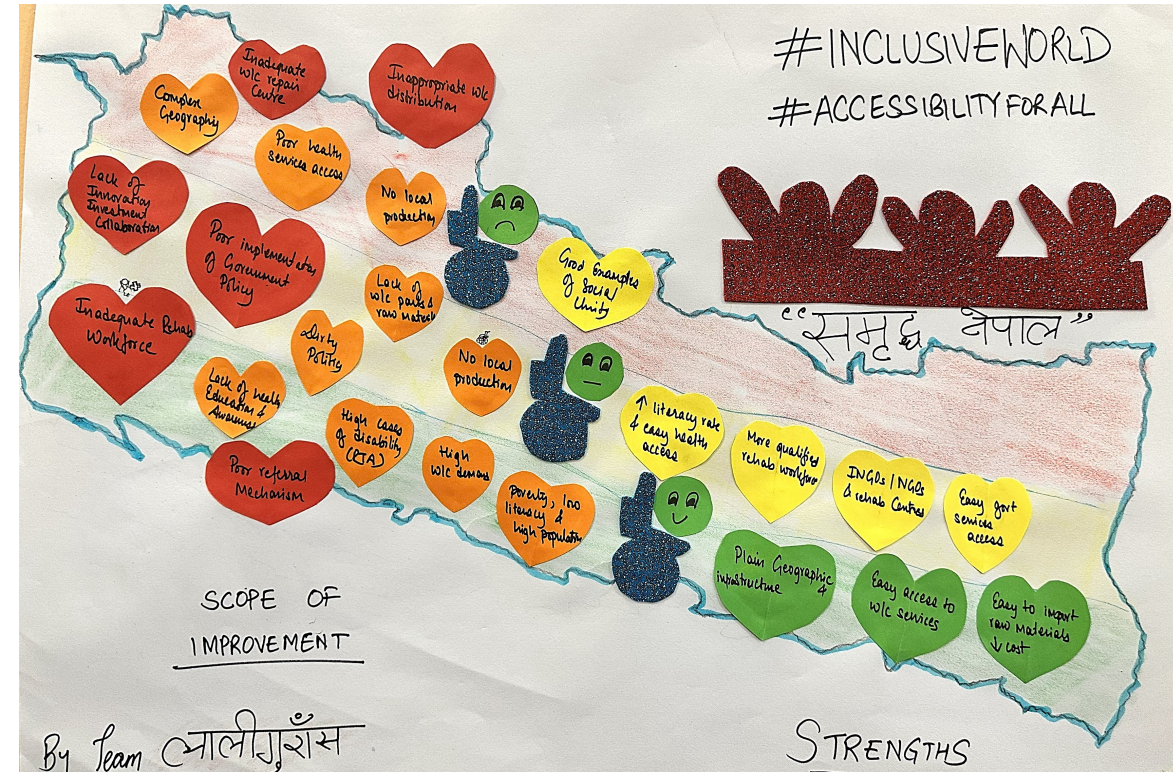 #INCLUSIVEWORLD
#ACCESSIBILITYFORALL
Inadequate
w/c repair
Centre
Inappropriate w/c
distribution
Complex
Geography
Poor health
services access
Lack of
Innovation
Investment
Collaboration
No local
production
Poor implementation
of Government
Policy
Good Examples
of Social
Unity
Lack of
w/c parts &
raw material
"समृद्ध नेपाल"
Inadequate Rehab
Workforce
Dirty
Politics
No local
production
Lack of health
Education &
Awareness
High cases
of disability
(RTA)
↑ literacy rate
& easy health
access
More qualified
rehab workforce
INGOs / NGOs
& rehab Centres
Easy govt
services
access
Poor referral
Mechanism
High
w/c demand
Poverty, low
literacy &
high population
Plain Geographic &
infrastructure
Easy access to
w/c services
Easy to import
raw materials
↓ cost
SCOPE OF
IMPROVEMENT
By Team लालीगुराँस
STRENGTHS